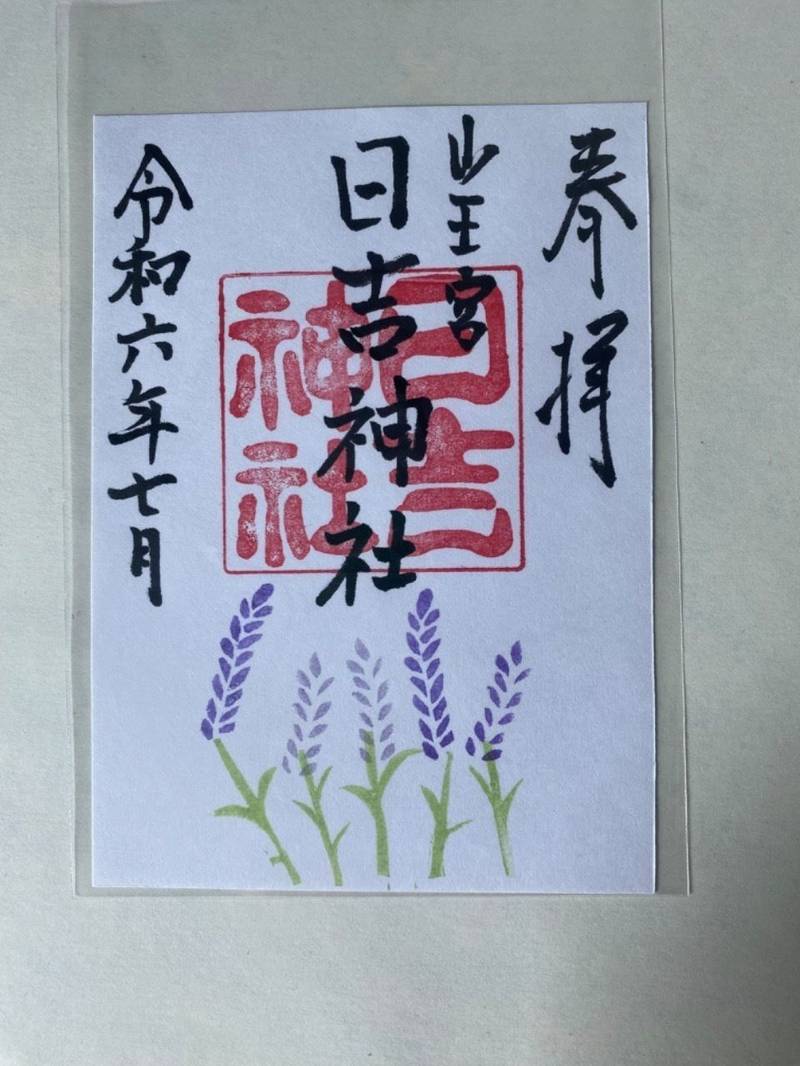 奉拝
山王宮
日吉神社
日吉
神社
令和六年七月